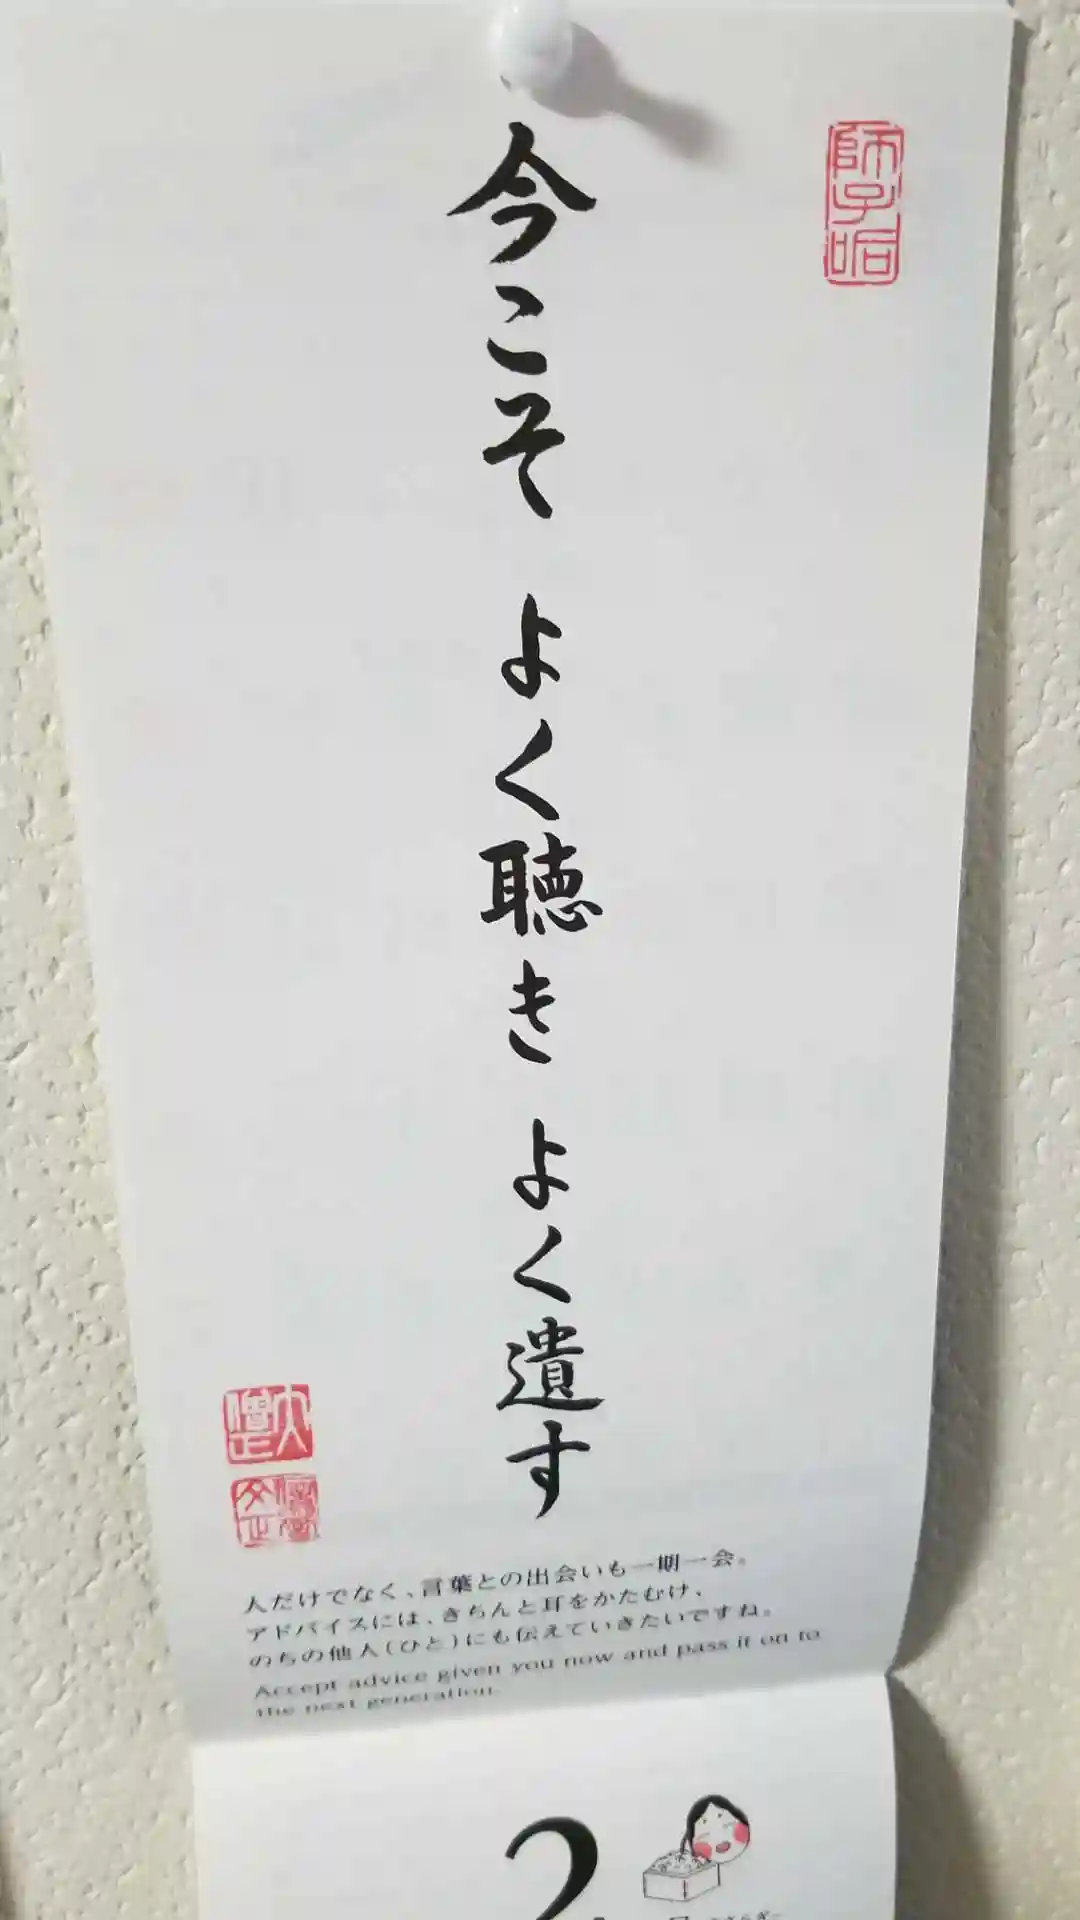 今こそ よく聴き よく遺す
人だけでなく、言葉との出会いも一期一会。
アドバイスには、きちんと耳をかたむけ、
のちの他人(ひと)にも伝えていきたいですね。
Accept advice given you now and pass it on to
the next generation.
2